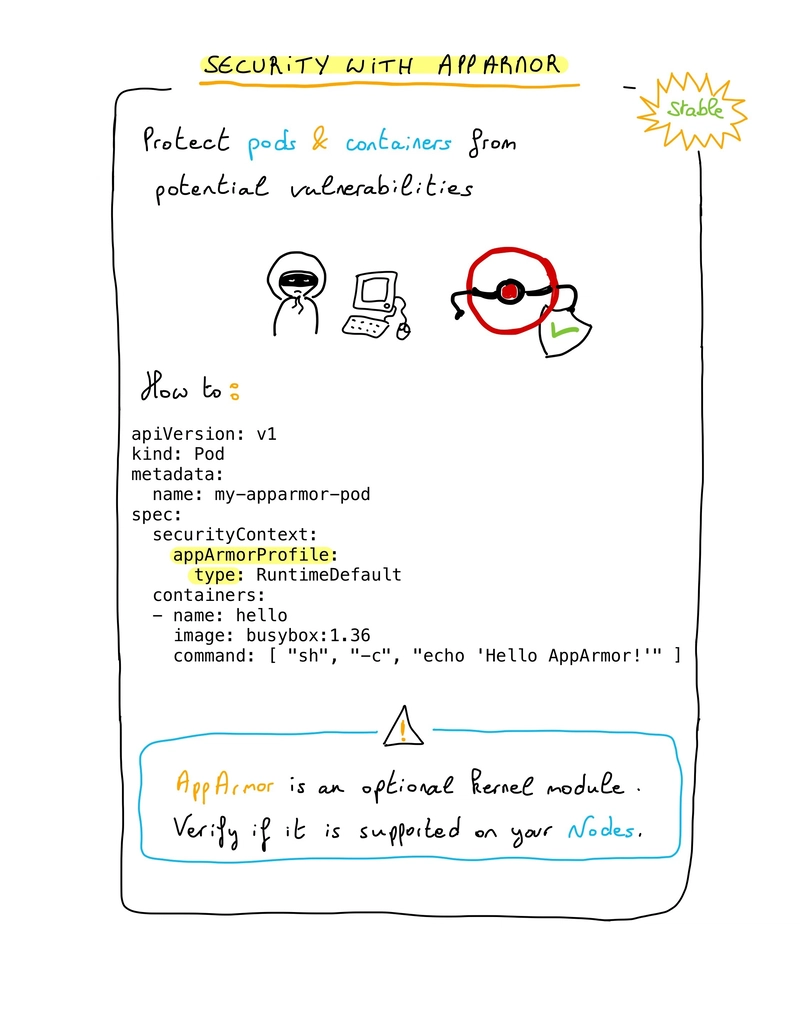 SECURITY WITH APPARMOR
Stable
Protect pods & containers from
potential vulnerabilities
How to :
apiVersion: v1
kind: Pod
metadata:
  name: my-apparmor-pod
spec:
  securityContext:
    appArmorProfile:
      type: RuntimeDefault
  containers:
  - name: hello
    image: busybox:1.36
    command: [ "sh", "-c", "echo 'Hello AppArmor!'" ]
!
AppArmor is an optional kernel module.
Verify if it is supported on your Nodes.